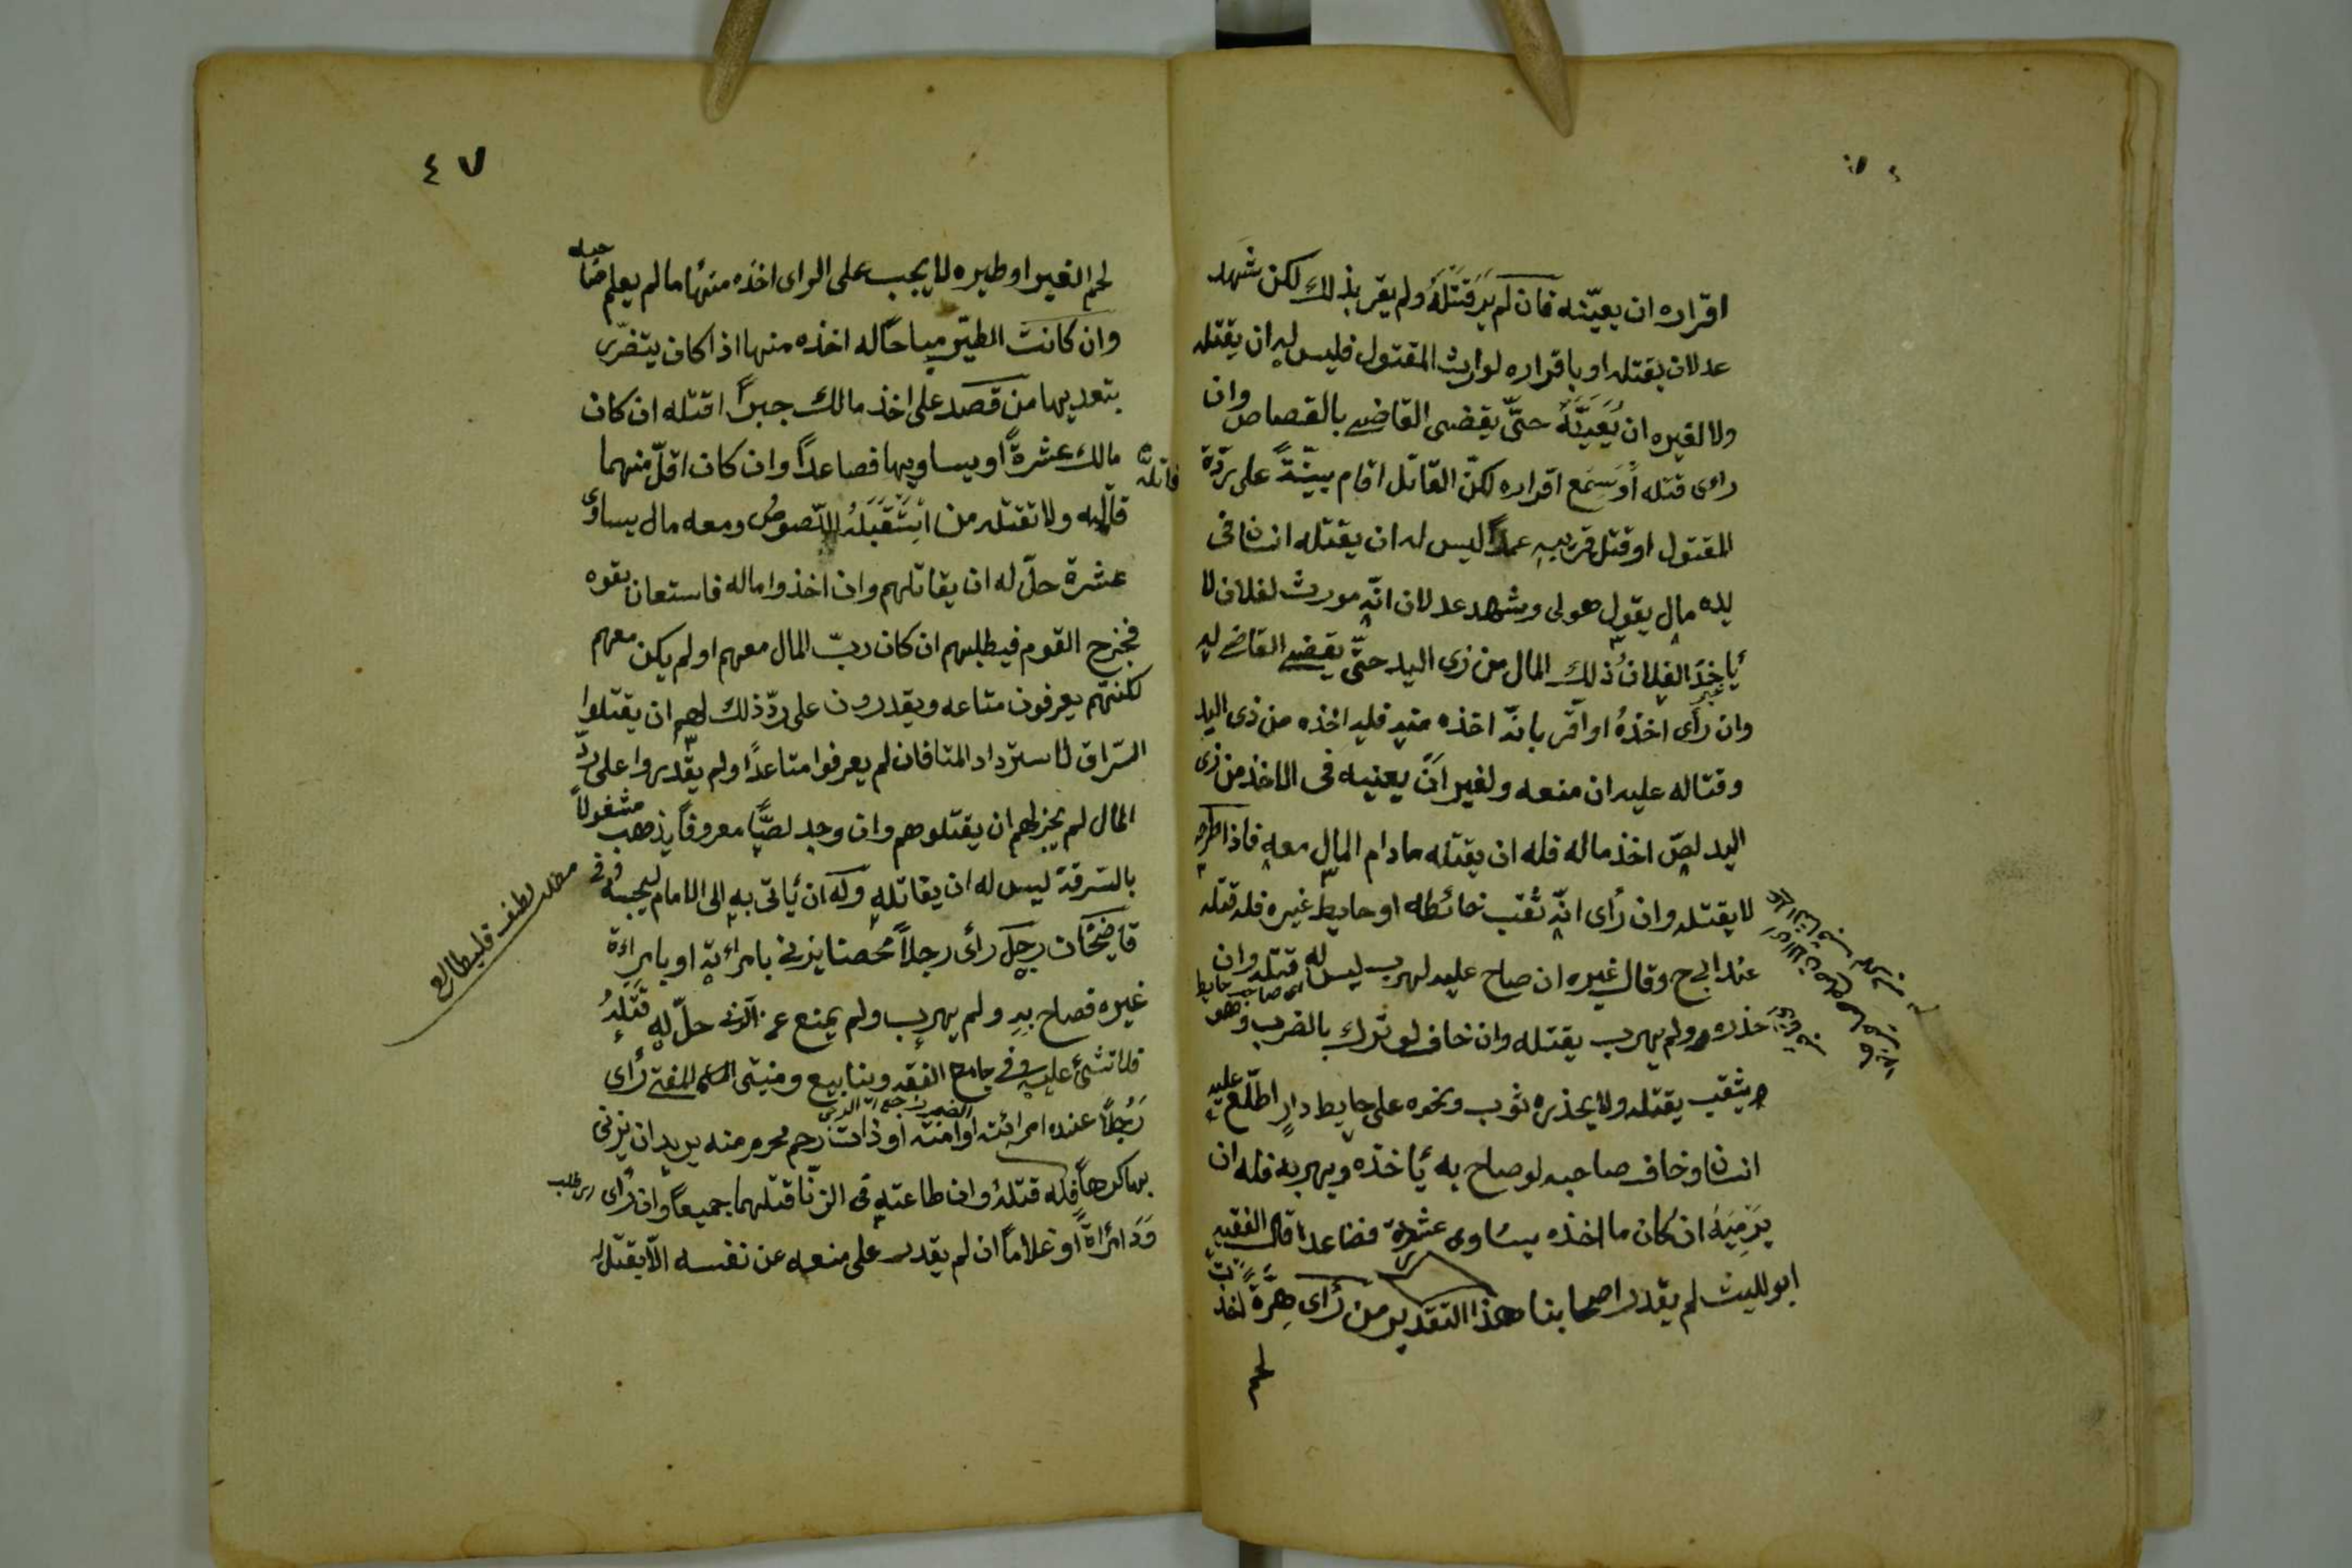 اقراره ان يعيّنه فان لم يَرَ قَتْلَهُ ولم يقر بذلك لكن شهد
عدلان بقتله او باقراره لوارث المقتول فليس له ان يقتله
ولا لغيره ان يُعَيِنَّهُ حتّى يقضى القاضى بالقصاص وان
راى قتله اَوْ سَمِع اقراره لكنّ القاتل اقام بيّنةً على ردّة
المقتول او قتل قريبه عمداً ليس له ان يقتله انسان فى
يده مال يقول هو لى وشهد عدلان انّه مورث لفلان لا
يأخذ الفلان ذلك المال من ذى اليد حتّى يقضى القاضى له
وان رأى اخذهُ او اقر بانّه اخذه منه فله اخذه من ذى اليد
وقتاله عليه ان منعه ولغير اَنْ يعنيه فى الاخذ من ذى
اليد لصّ اخذ ماله فله ان يقتله ما دام المال معه فاذا طرحه
لا يقتله وان رأى انّه ثقب حائطه او حايط غيره فله قتله
عند ابى ح وقال غيره ان صاح عليه لهرب ليس له قتله وان
حذره ولم يهرب يقتله وان خاف لو ترك بالضرب وهو
يثقب يقتله ولا يحذره ثوب ونحوه على حايط دارٍ اطلّع عليه
انسان وخاف صاحبه لو صاح به يأخذه ويهرب فله ان
يَرْمِيَهُ ان كان ما اخذه يساوى عشرة فصاعدا قال الفقيه
ابو لليث لم يقدر اصحابنا هذا التقدير من رأى هِرَّةً اخذت
٤٧
لحم الغير او طيره لا يجب على الراى اخذه منها ما لم يعلم صاحبه
وان كانت الطيّر مباحاً له اخذه منها اذا كان يتضرّى
بتعديها من قصد على اخذ مالك جبراً اقتله ان كان
مالك عشرةً او يساويها فصاعداً وان كان اقلّ منهما
قاتله
ولا تقتله من اسْتَقْبَلَهُ اللّصوصُ ومعه مال يساوى
عشرة حلّ له ان يقاتلهم وان اخذوا ماله فاستعان بقوه
فخرج القوم فيطلبهم ان كان ربّ المال معهم او لم يكن معهم
لكنّهم يعرفون متاعه ويقدرون على ردّ ذلك لهم ان يقتلوا
السّراق لاسترداد المتافان لم يعرفوا متاعدًا ولم يقدروا على ردّ
المال لم يجز لهم ان يقتلوهم وان وجد لصًّا معروفاً يذهب مشغولاً
بالسّرقة ليس له ان يقاتله وله ان يأتى به الى الامام ليحبسه وفى
قاضيخان رجل رأى رجلاً محصنا يزنى بامرأته او بامراءة
غيره فصاح به ولم يهرب ولم يمنع عن الزنى حلّ له قَتْلهُ
فلا شئ عليه وفى جامع الفقه وينابيع ومنيتى المفتى رأى
رَجُلاً عنده امرائته او امته او ذات رحم محرم منه يريد ان يزنى
بها كرهاً فله قتلهُ وان طاعته فى الزنّا قتلهما جميعاً وان رأى
امْرَأةً او غلاماً ان لم يقدر على منعه عن نفسه الّا بقتله